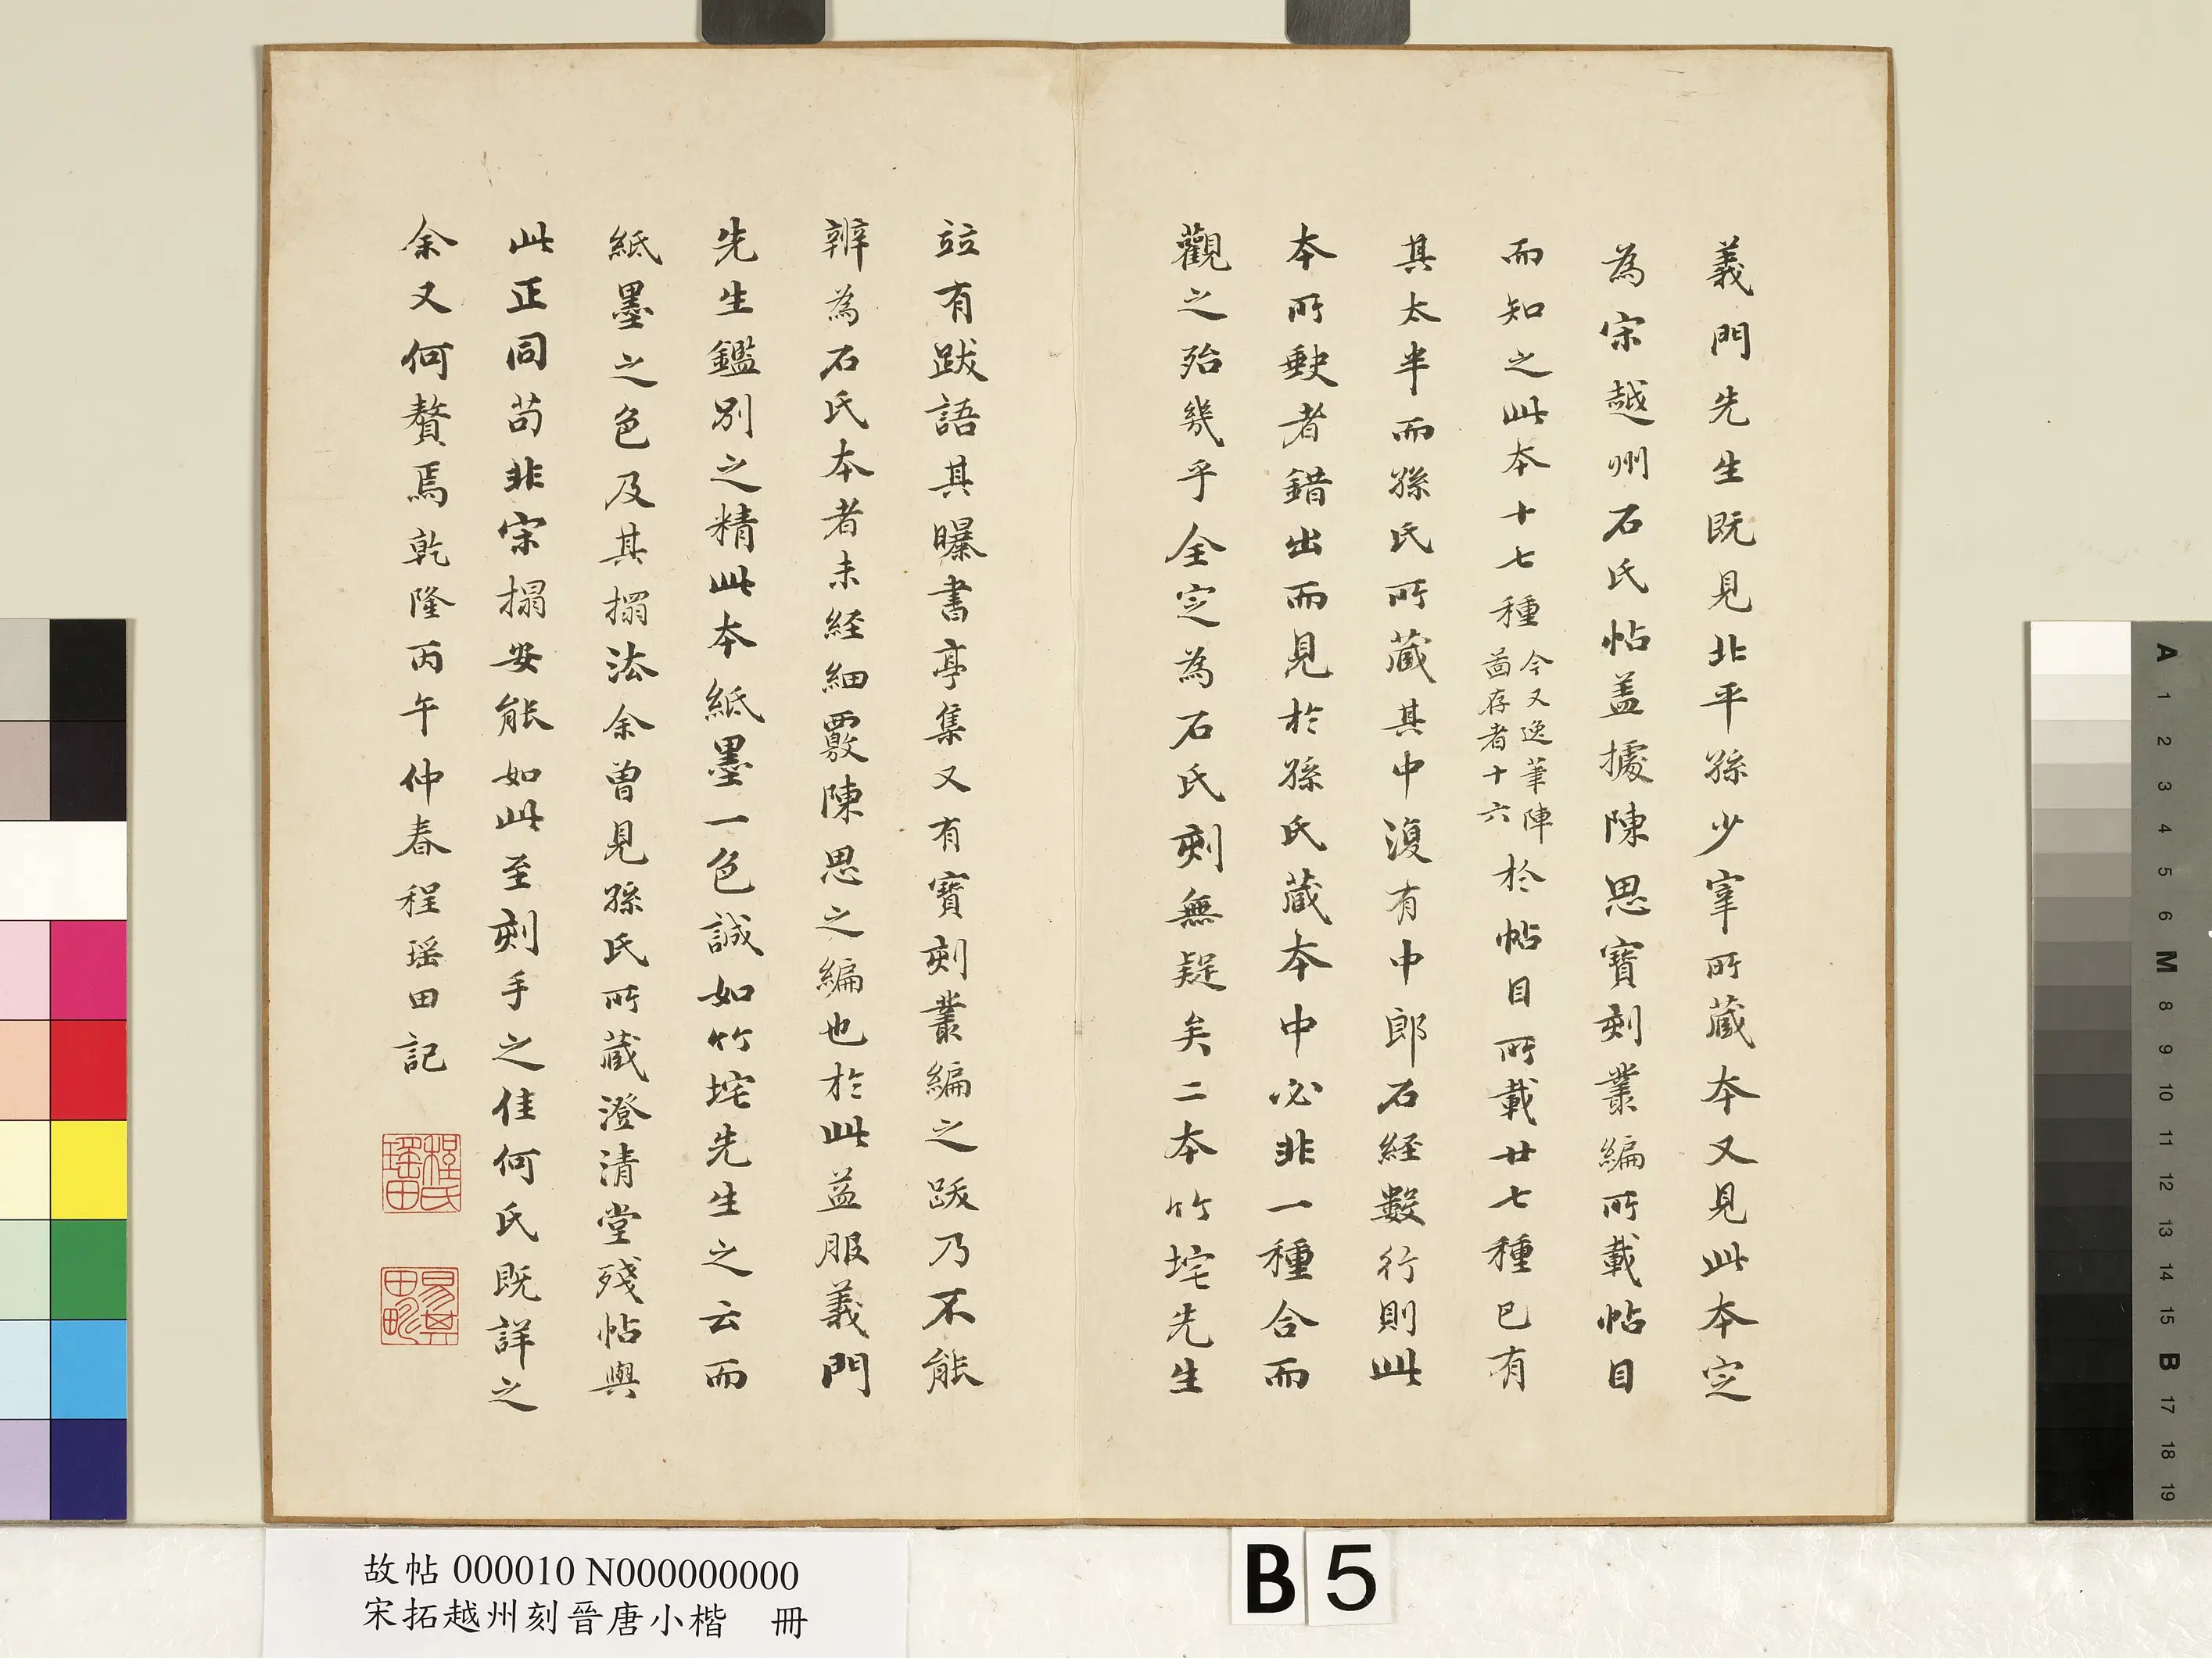 義門先生既見北平孫少宰所藏本又見此本定
為宋越州石氏帖盖據陳思寶刻叢編所載帖目
而知之此本十七種
今又逸筆陣
啚存者十六
於帖目所載廿七種已有
其太半而孫氏所藏其中復有中郎石經數行則此
本所軼者錯出而見於孫氏藏本中必非一種合而
觀之殆幾乎全定為石氏刻無疑矣二本竹垞先生
竝有跋語其曝書亭集又有寶刻叢編之跋乃不能
辨為石氏本者未經細覈陳思之編也於此益服義門
先生鑑別之精此本紙墨一色誠如竹垞先生之云而
紙墨之色及其搨法余曾見孫氏所藏澄清堂殘帖與
此正同苟非宋搨安能如此至刻手之佳何氏既詳之
余又何贅焉乾隆丙午仲春程瑤田記
程氏瑤田
易田
故帖 000010 N000000000
宋拓越州刻晉唐小楷 冊
B 5
A 1 2 3 4 5 6 M 8 9 10 11 12 13 14 15 B 17 18 19